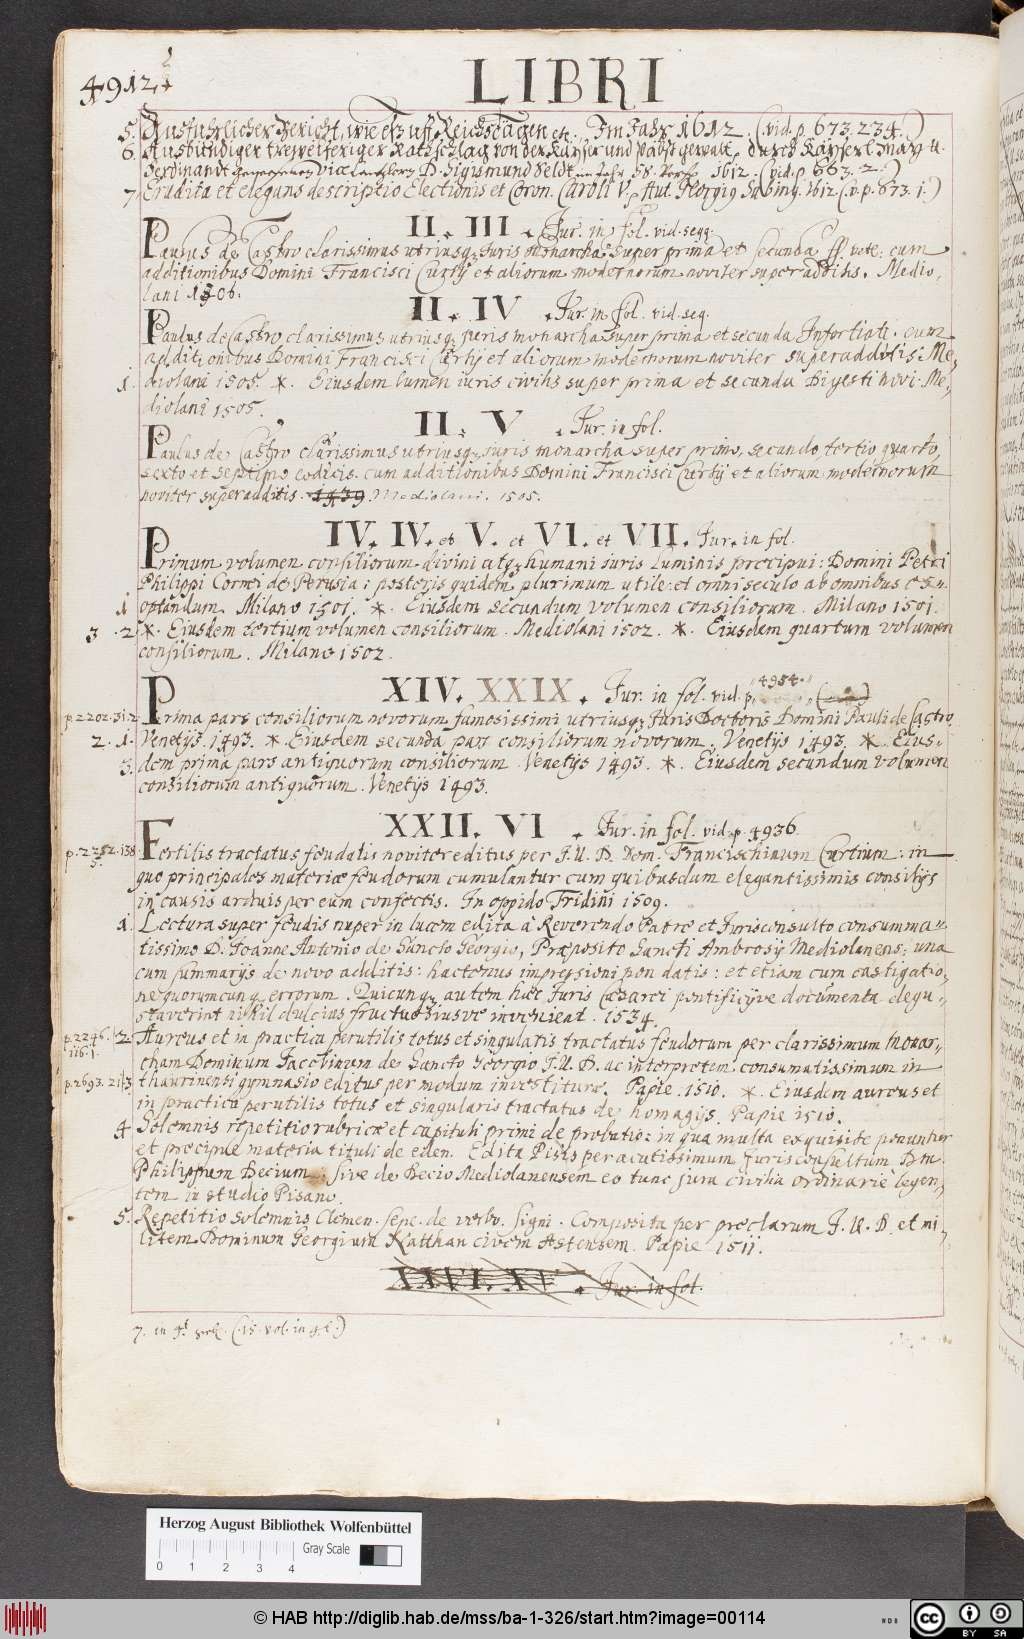 4912.
LIBRI
5. Ausfuhrlicher Bericht, wie etz uff Reichstägen etc. Im Jahr 1612. (vid. p. 673. 234.)
6. Ausbündiger treweiferiger Rathschlag von der Käyser und Päbst gewalt, durch Käyserl. May. u.
Ferdinandt Vice D. Sigismund Seldt im Jahr 58. 1612. (vid. p. 663. 2.)
7. Erudita et elegans descriptio Electionis et Coron. Caroli V. Aut. Georgio Sabino. 1612. (v. p. 673. 1.)
II. III. Jur. in fol. vid. seqq.
Paulus de Castro clarissimus utriusq; Juris monarcha super prima et secunda ff. vete. cum
additionibus Domini Francisci Curtij et aliorum modernorum noviter superadditis. Medio-
lani 1506.
II. IV. Jur. in fol. vid. seq.
Paulus de Castro clarissimus utriusq; juris monarcha super prima et secunda Infortiati. cum
additionibus Domini Francisci Curtij et aliorum modernorum noviter superadditis. Me-
1. diolani 1505. * Eiusdem lumen iuris civilis super prima et secunda Digesti novi. Me-
diolani 1505.
II. V. Jur. in fol.
Paulus de Castro clarissimus utriusq; juris monarcha super primo, secundo, tertio, quarto,
sexto et septimo codicis. cum additionibus Domini Francisci Curtij et aliorum modernorum
noviter superadditis. 1439. Mediolani. 1505.
IV. IV. et V. et VI. et VII. Jur. in fol.
Primum volumen consiliorum divini atq; humani iuris luminis precipui: Domini Petri
Philippi Cornei de Perusia: posteris quidem plurimum utile: et omni seculo ab omnibus ex-
1 optandum. Milano 1501. * Eiusdem secundum volumen consiliorum. Milano 1501.
3 . 2 * Eiusdem tertium volumen consiliorum. Mediolani 1502. * Eiusdem quartum volumen
consiliorum. Milano 1502.
XIV. XXIX. Jur. in fol. vid. p. 4954.
p. 2202. 31. 2 Prima pars consiliorum novorum famosissimi utriusq; Juris Doctoris Domini Pauli de Castro
2. 1. Venetijs. 1493. * Eiusdem secunda pars consiliorum novorum. Venetijs 1493. * Eius-
3. dem prima pars antiquorum consiliorum. Venetijs 1493. * Eiusdem secundum volumen
consiliorum antiquorum. Venetijs 1493.
XXII. VI. Jur. in fol. vid. p. 4936.
p. 2252. 138. Fertilis tractatus feudalis noviter editus per J. U. D. Dom. Francischinum Curtium: in
quo principales materiæ feudorum cumulantur cum quibusdam elegantissimis consilijs
in causis arduis per eum confectis. In oppido Tridini 1509.
1. Lectura super feudis nuper in lucem edita à Reverendo Patre et Jurisconsulto consumma-
tissimo D. Joanne Antonio de Sancto Georgio, Præposito Sancti Ambrosij Mediolanens: una
cum summarijs de novo additis: hactenus impressioni non datis: et etiam cum castigatio-
ne quorumcunq; errorum. Quicunq; autem hæc Juris Cæsarei pontificijve documenta degu-
staverint nihil dulcius fructuosiusve invenient. 1534.
p. 2246. 2. Aureus et in practica perutilis totus et singularis tractatus feudorum per clarissimum Monar-
116. 1. cham Dominum Jacobinum de Sancto Georgio J. U. D. ac interpretem consumatissimum in
p. 2693. 21. 3 thaurinensi gymnasio editus per modum investituræ. Papie. 1510. * Eiusdem aureus et
in practica perutilis totus et singularis tractatus de homagijs. Papie 1510.
4 Solemnis repetitio rubricæ et capituli primi de probatio: in qua multa exquisite ponuntur
et precipue materia tituli de eden. Edita Pisis per acutissimum Jurisconsultum Dm.
Philippum Decium: sive de Decio Mediolanensem eo tunc jura civilia ordinarie legen-
tem in studio Pisano.
5. Repetitio solemnis Clemen. sepe. de verbo. signi. Composita per præclarum J. U. D. et mi-
litem Dominum Georgium Natthan civem Astensem. Papie 1511.
XXVI. XV. Jur. in fol.
7. in (15. vol. in )
Herzog August Bibliothek Wolfenbüttel
Gray Scale
0 1 2 3 4
© HAB http://diglib.hab.de/mss/ba-1-326/start.htm?image=00114
WDB
cc BY SA